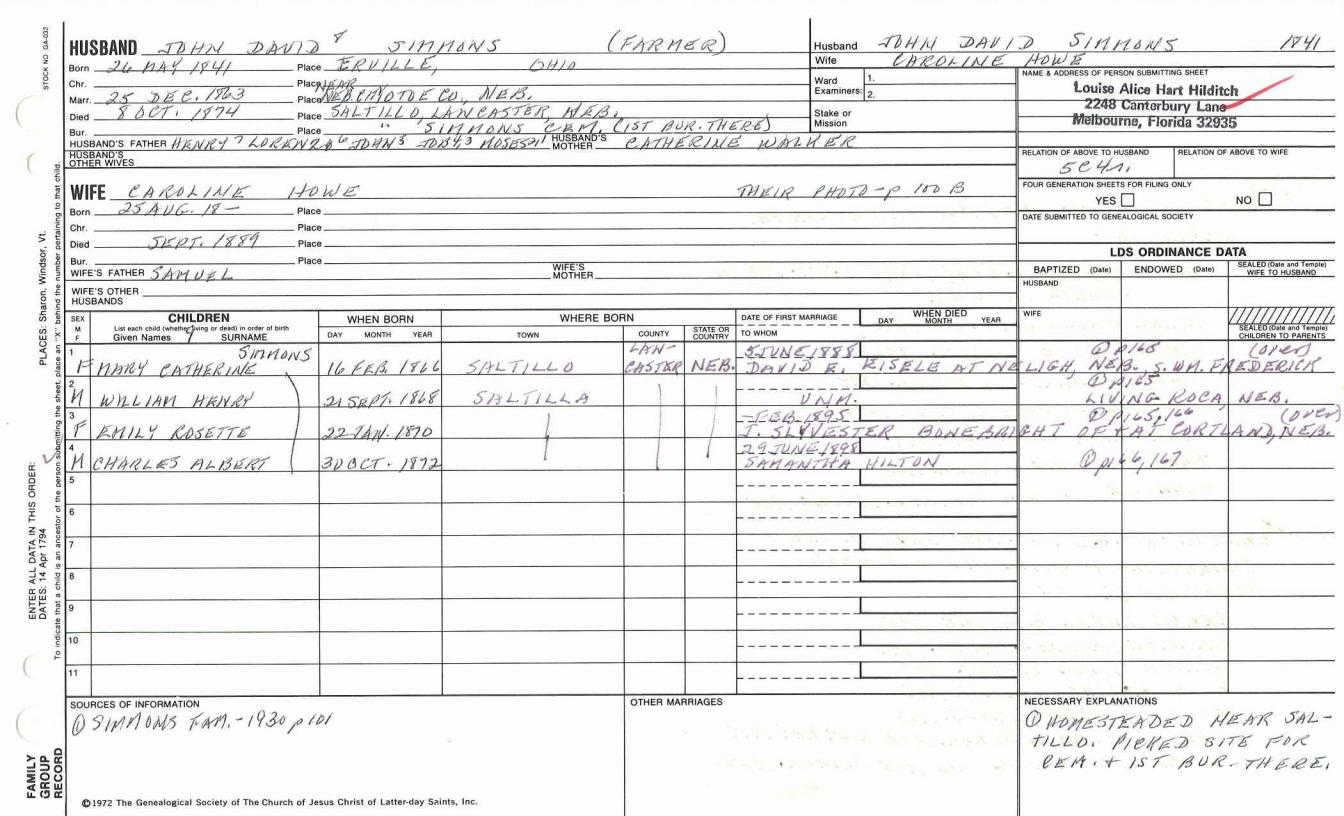 STOCK NO GA-032
HUSBAND JOHN DAVID 8 SIMMONS (FARMER)
Born 26 MAY 1841 Place ERVILLE, OHIO
Chr. Place NEAR
Marr. 25 DEC. 1863 Place CO., NEB.
Died 8 OCT. 1874 Place SALTILLO, LANCASTER, NEB.
Bur. Place " SIMMONS CEM. (1ST BUR. THERE)
HUSBAND'S FATHER HENRY 7 LORENZO 6 JOHN 5 3 MOSES 1 HUSBAND'S MOTHER CATHERINE WALKER
HUSBAND'S OTHER WIVES
WIFE CAROLINE HOWE THEIR PHOTO-p 100 B
Born 25 AUG. 18- Place
Chr. Place
Died SEPT. 1889 Place
Bur. Place
WIFE'S FATHER SAMUEL WIFE'S MOTHER
WIFE'S OTHER HUSBANDS
Husband JOHN DAVID SIMMONS 1841
Wife CAROLINE HOWE
Ward Examiners: 1. 2.
Stake or Mission
NAME & ADDRESS OF PERSON SUBMITTING SHEET
Louise Alice Hart Hilditch
2248 Canterbury Lane
Melbourne, Florida 32935
RELATION OF ABOVE TO HUSBAND RELATION OF ABOVE TO WIFE
5C4r.
FOUR GENERATION SHEETS FOR FILING ONLY
YES NO
DATE SUBMITTED TO GENEALOGICAL SOCIETY
LDS ORDINANCE DATA
BAPTIZED (Date) ENDOWED (Date) SEALED (Date and Temple) WIFE TO HUSBAND
HUSBAND
WIFE
SEALED (Date and Temple) CHILDREN TO PARENTS
SEX M F CHILDREN WHEN BORN WHERE BORN DATE OF FIRST MARRIAGE WHEN DIED
List each child (whether living or dead) in order of birth
Given Names 9 SURNAME DAY MONTH YEAR TOWN COUNTY STATE OR COUNTRY TO WHOM DAY MONTH YEAR
1 SIMMONS LAN- 5 JUNE 1888 ① p165 (over)
F MARY CATHERINE 16 FEB. 1866 SALTILLO CASTER NEB. DAVID E. EISELE AT NELIGH, NEB. S. WM. FREDERICK
2 ① p165
M WILLIAM HENRY 21 SEPT. 1868 SALTILLA UNM. LIVING ROCA, NEB.
3 -FEB. 1895 ① p165,166 (over)
F EMILY ROSETTE 22 JAN. 1870 J. SLYVESTER BONEBRIGHT OF + AT CORTLAND, NEB.
4 29 JUNE 1898
M CHARLES ALBERT 30 OCT. 1872 SAMANTHA HILTON ① p166,167
5
6
7
8
9
10
11
SOURCES OF INFORMATION
① SIMMONS FAM.-1930 p 101
OTHER MARRIAGES
NECESSARY EXPLANATIONS
① HOMESTEADED NEAR SAL-
TILLO. PICKED SITE FOR
CEM. + 1ST BUR. THERE.
©1972 The Genealogical Society of The Church of Jesus Christ of Latter-day Saints, Inc.
FAMILY GROUP RECORD
ENTER ALL DATA IN THIS ORDER: PLACES: Sharon, Windsor, Vt.
DATES: 14 Apr 1794
To indicate that a child is an ancestor of the person submitting the sheet, place an "X" behind the number pertaining to that child.